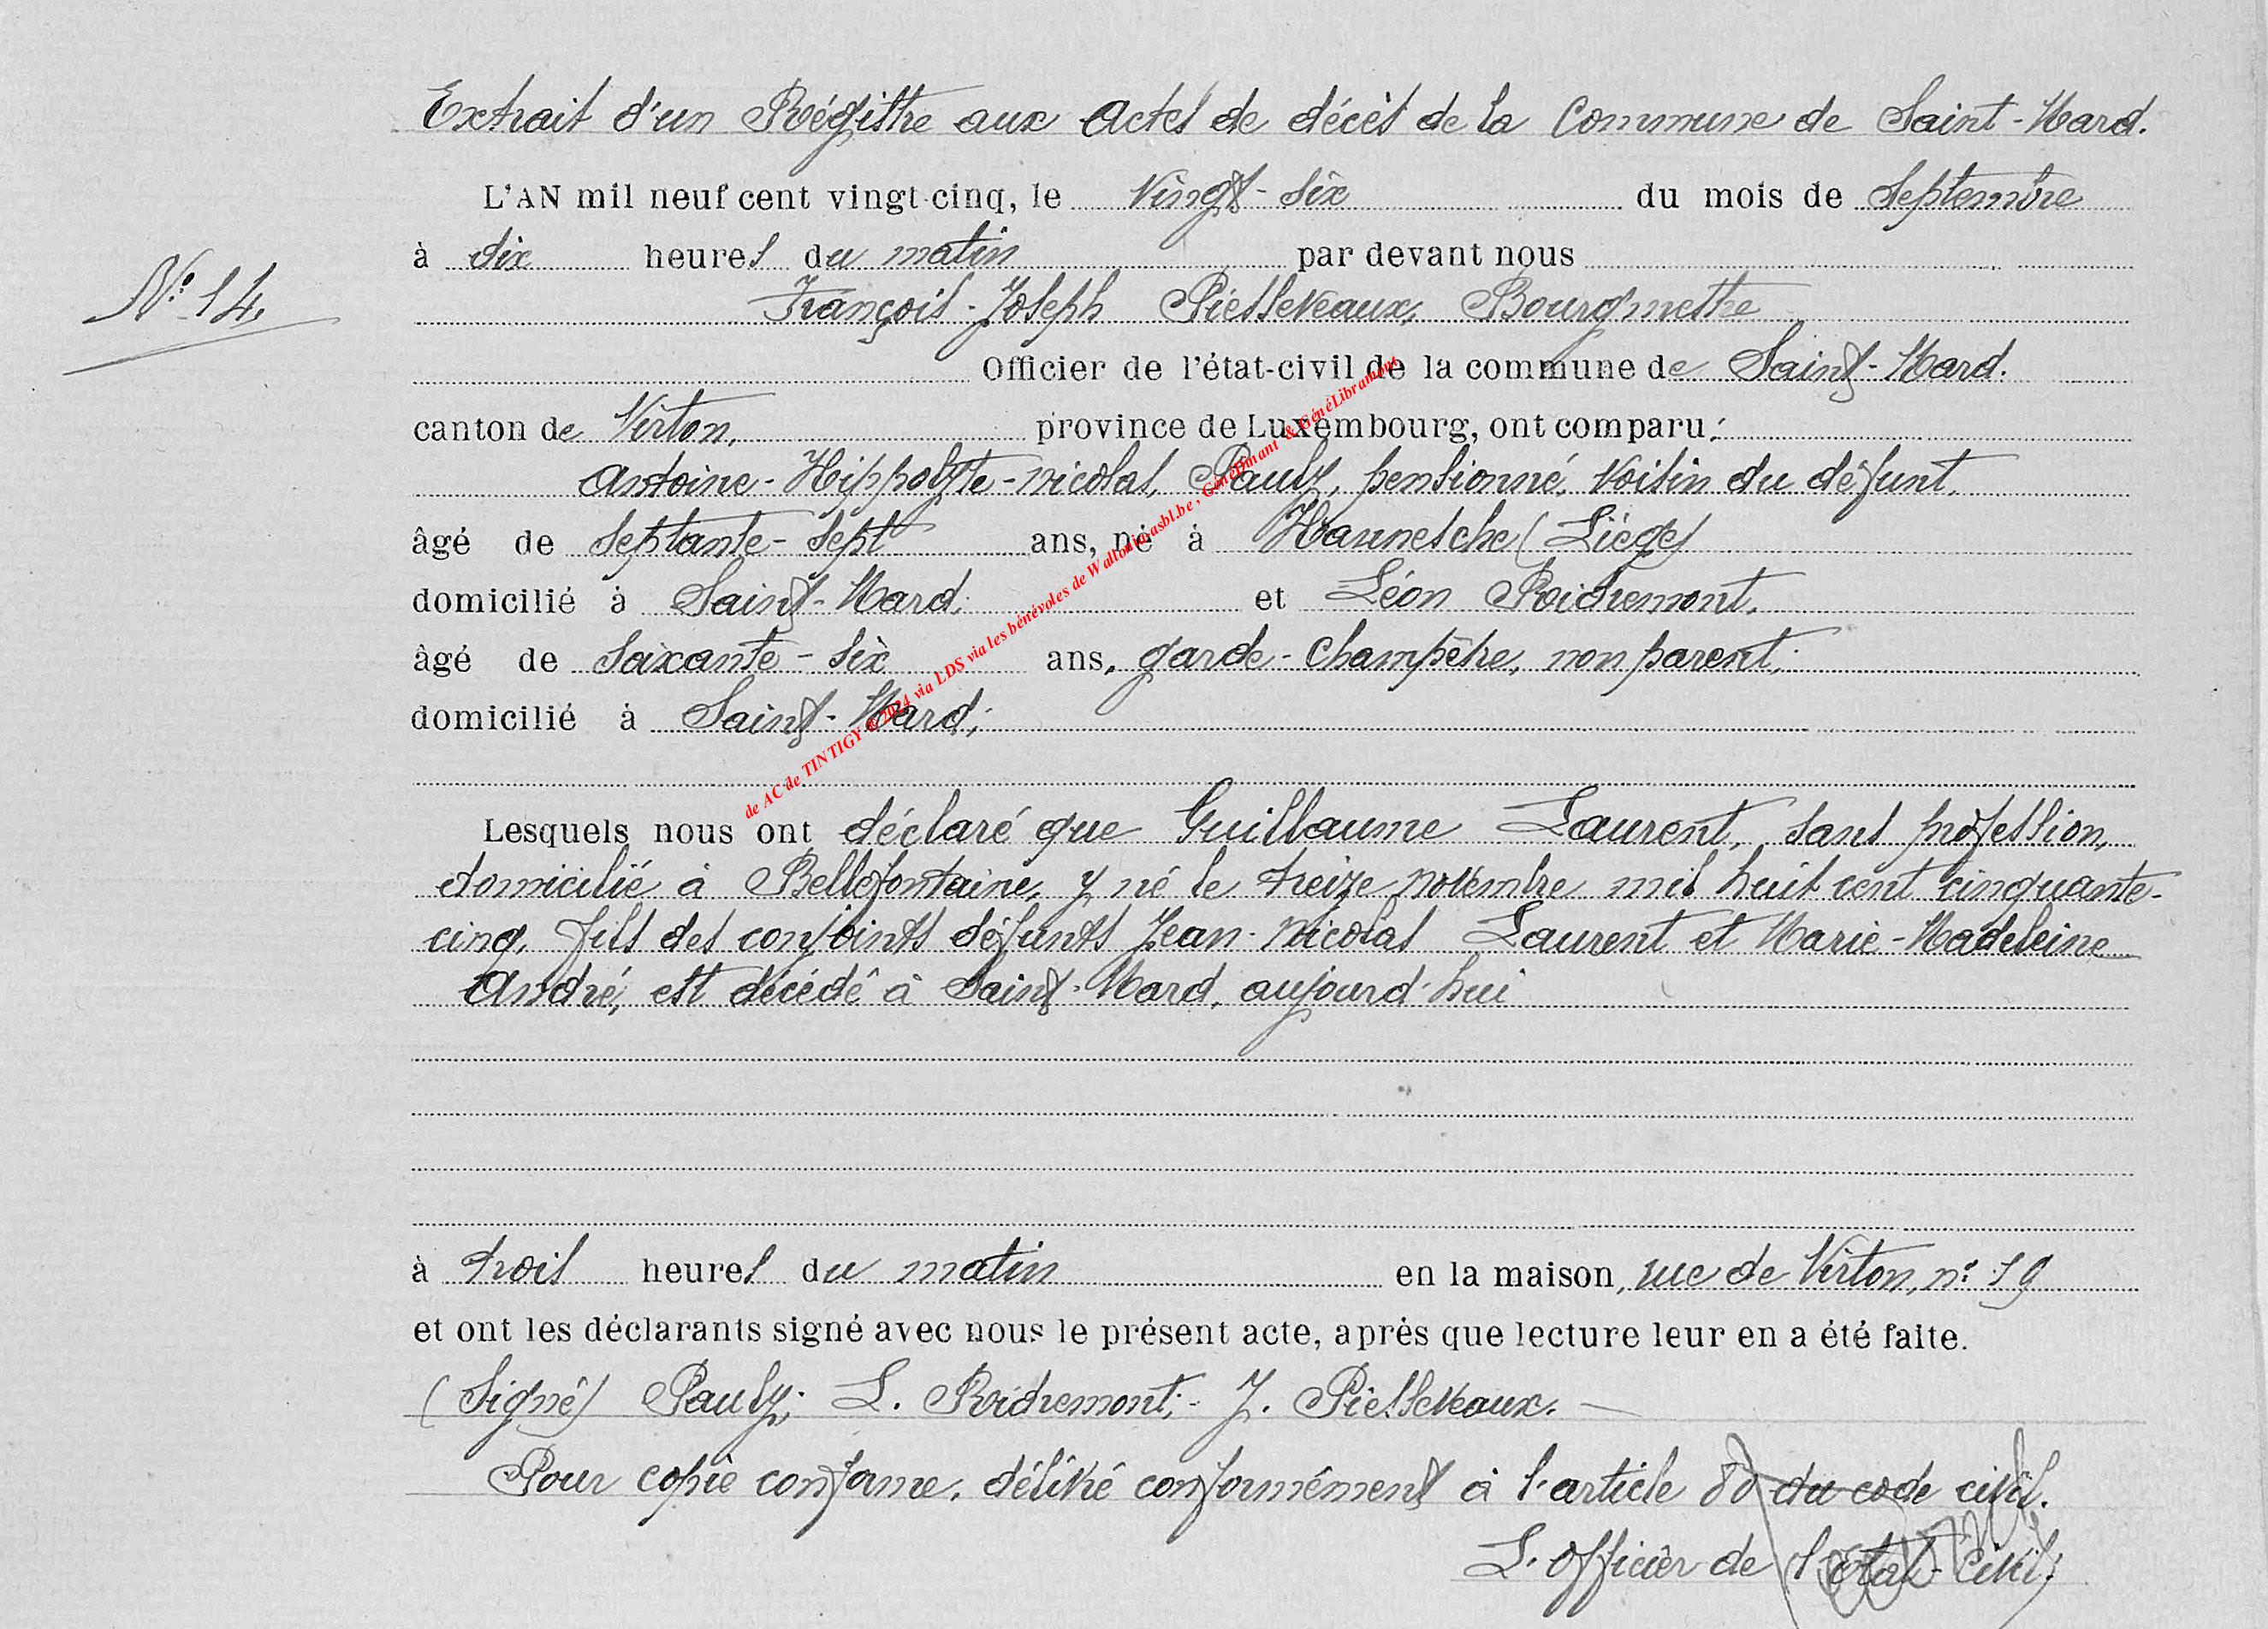 Extrait d'un Régistre aux Actes de décès de la Commune de Saint-Mard.
L'AN mil neuf cent vingt-cinq, le vingt-six du mois de Septembre
à dix heures du matin par devant nous
N° 14.
François-Joseph Piesseveaux, Bourgmestre
Officier de l'état-civil de la commune de Saint-Mard.
canton de Virton, province de Luxembourg, ont comparu:
Antoine-Hippolyte-Nicolas, Pauly, pensionné, voisin du défunt.
âgé de septante-sept ans, né à Hannesche (Liége)
domicilié à Saint-Mard; et Léon Roidremont,
âgé de soixante-six ans, garde-champêtre, non parent;
domicilié à Saint-Mard;
de AC de TINTIGY © 2024 via LDS via les bénévoles de Walloniaasbl.be, GénéDinant & GénéLibramont
Lesquels nous ont déclaré que Guillaume Laurent, sans profession,
domicilié à Bellefontaine, y né le treize novembre mil huit cent cinquante-
cinq, fils des conjoints défunts Jean-Nicolas Laurent et Marie-Madeleine
André, est décédé à Saint-Mard, aujourd'hui
à trois heures du matin en la maison, rue de Virton, n° 19
et ont les déclarants signé avec nous le présent acte, après que lecture leur en a été faite.
(Signé) Pauly; L. Roidremont; - J. Piesseveaux. —
Pour copie conforme, délivré conformément à l'article 80 du code civil.
L'officier de l'Etat-Civil;